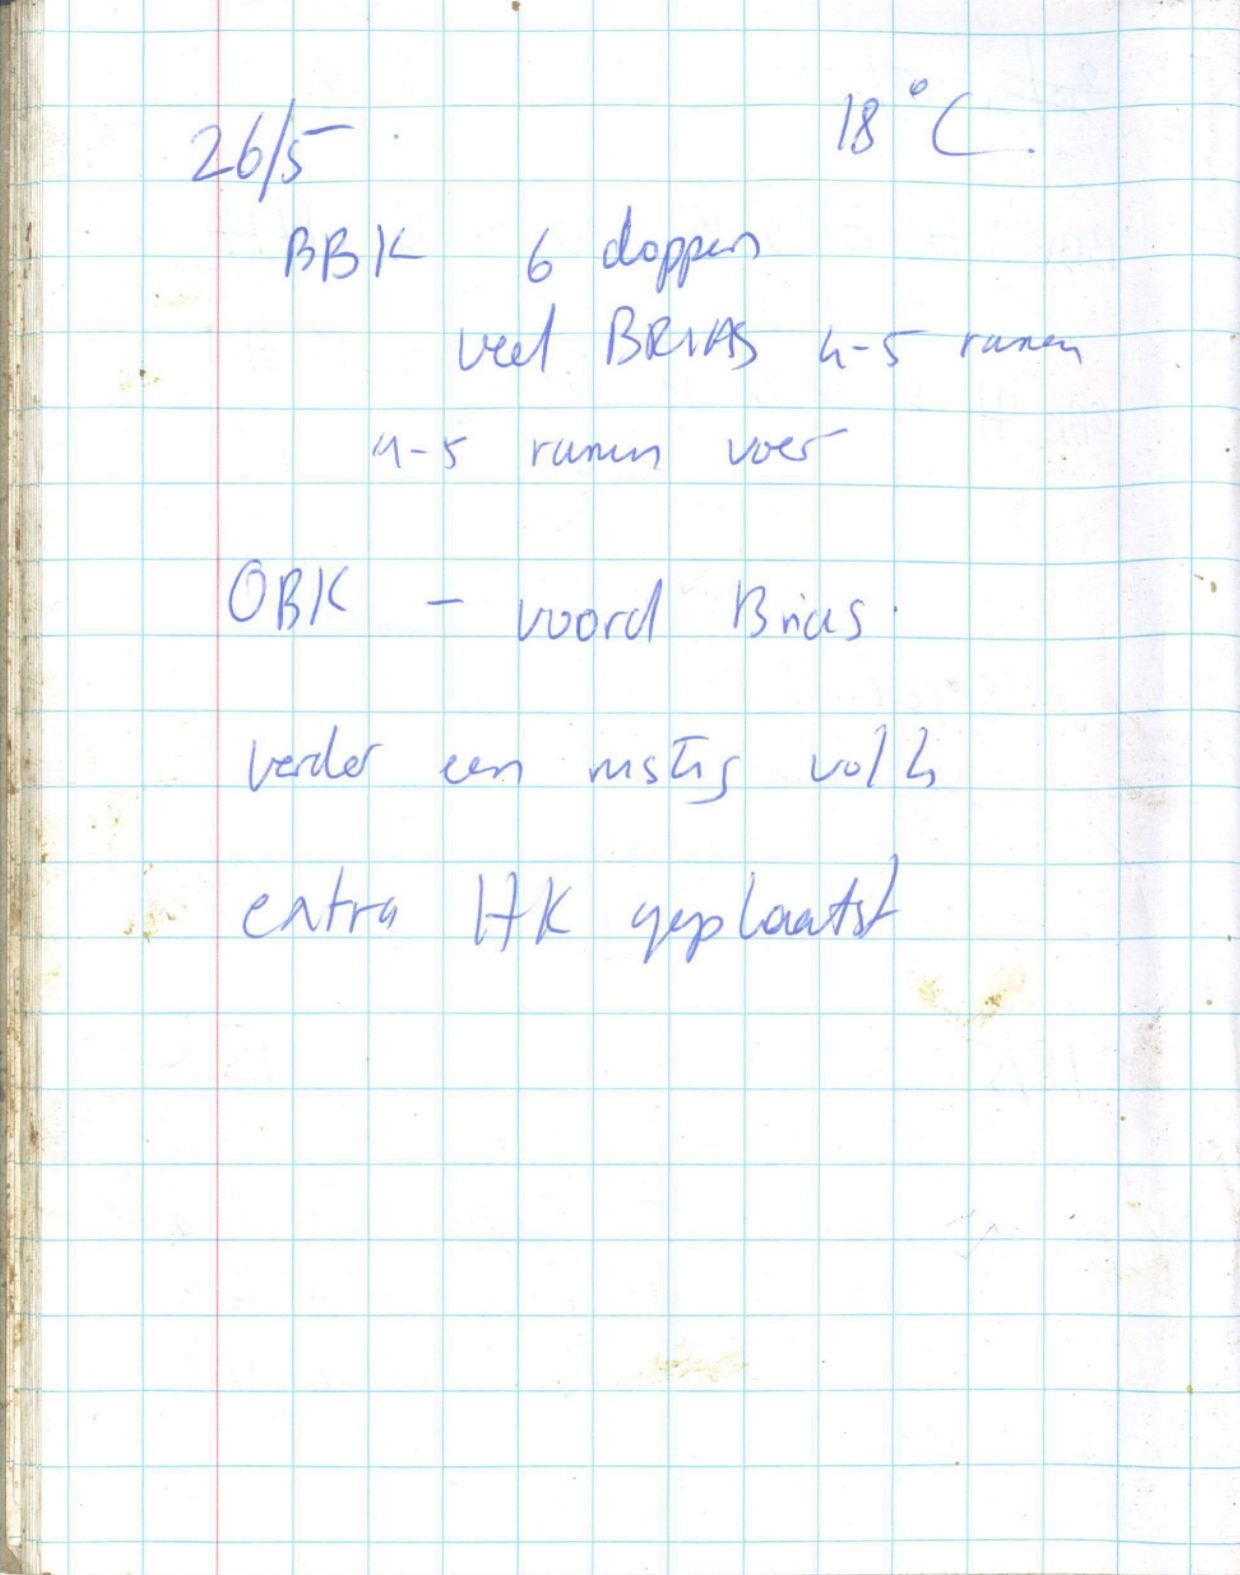 26/5 18°C.
BBK 6 doppen
veel BRIAS 4-5 ramen
4-5 ramen voer
OBK - voord Brias.
verder een rustig volk
extra HK geplaatst